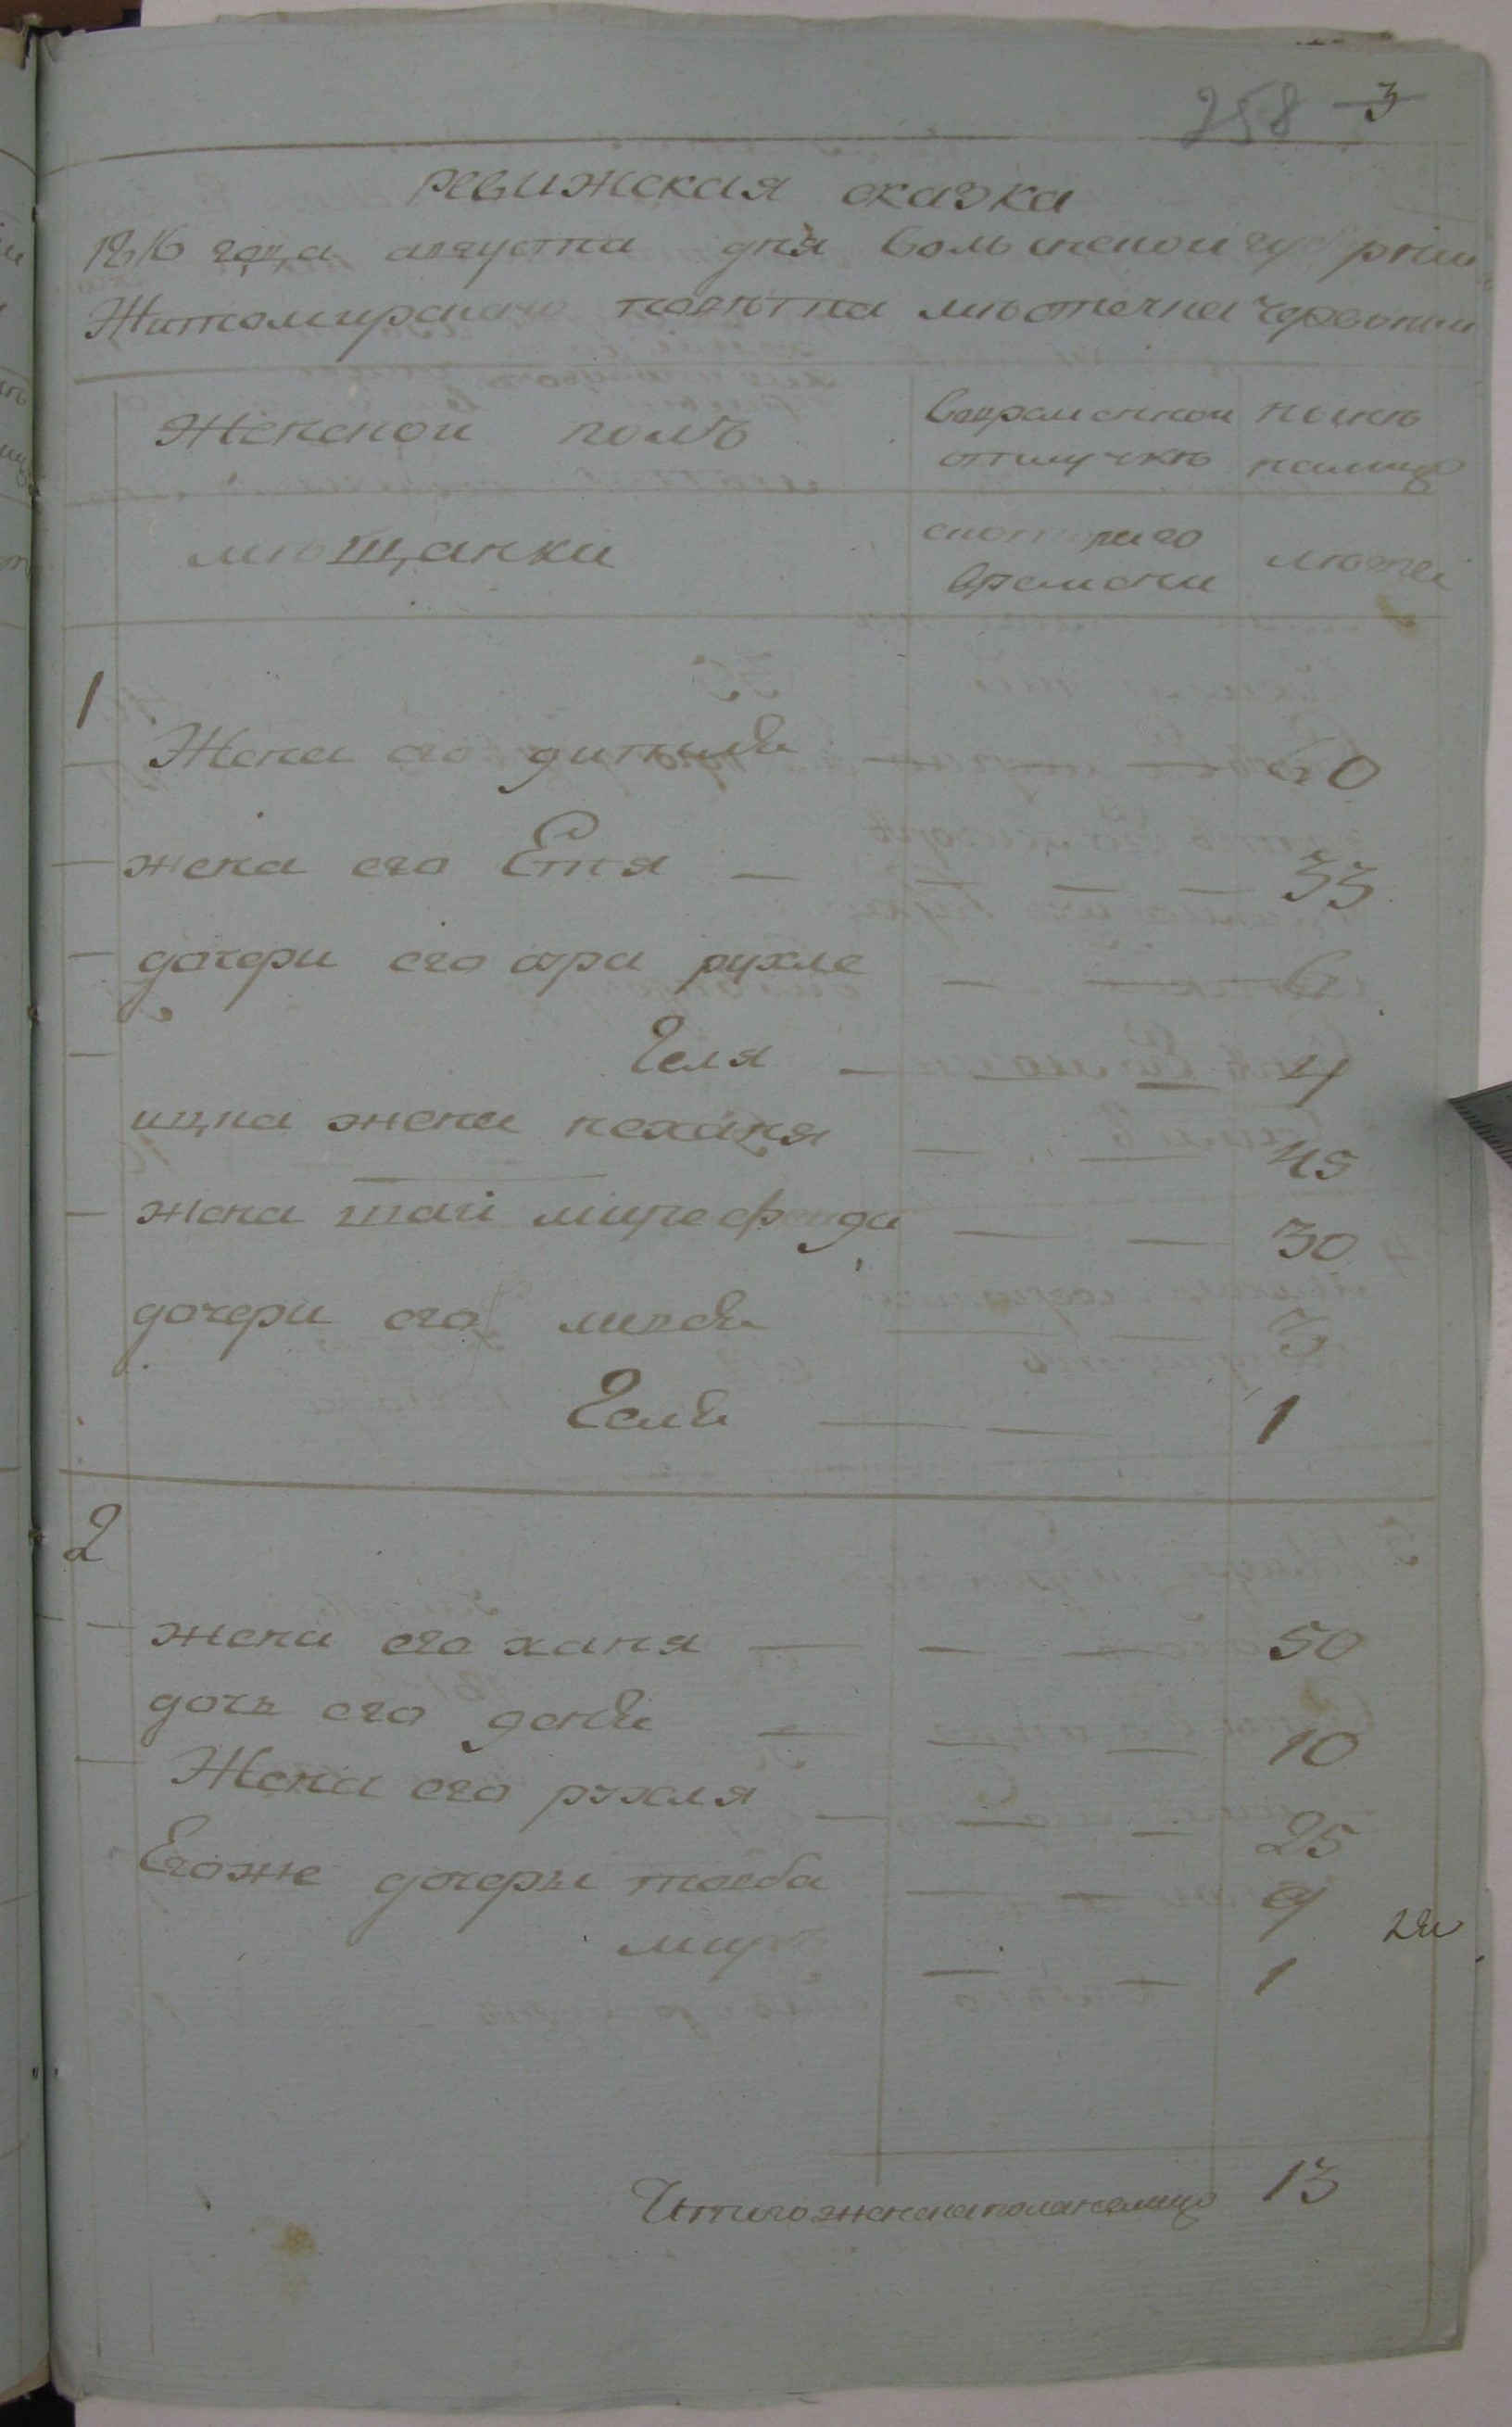 258 3
ревижская сказка
1816 года августа дня волынской губернии
Житомирского повѣта мѣстечка Червоний
Женской полъ
вовременной отлучкѣ
нынѣ налицо
мѣщанки
скоторого времени
лѣта
1
Жена его 40
жена его Етя 33
дочери его ори рухле 6
Геля 4
ицка жена неханя 45
жена шай 30
дочери его либе 3
Гелбе 1
2
жена его ханя 50
дочь его генбе 10
Жена его рухля 25
Егоже дочеры тоеба 9
мир 1
Итого женска пола налицо 13